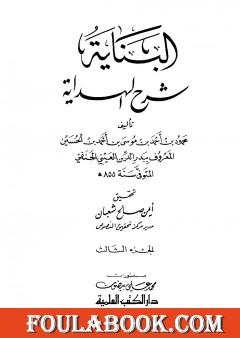 البناية
شرح الهداية
تأليف
محمود بن أحمد بن موسى بن أحمد بن الحسين
المعروف بدر الدين العيني الحنفي
المتوفى سنة ٨٥٥ هـ
تحقيق
أيمن صالح شعبان
الجزء الثالث
منشورات
محمد علي بيضون
دار الكتب العلمية
FOULABOOK.COM